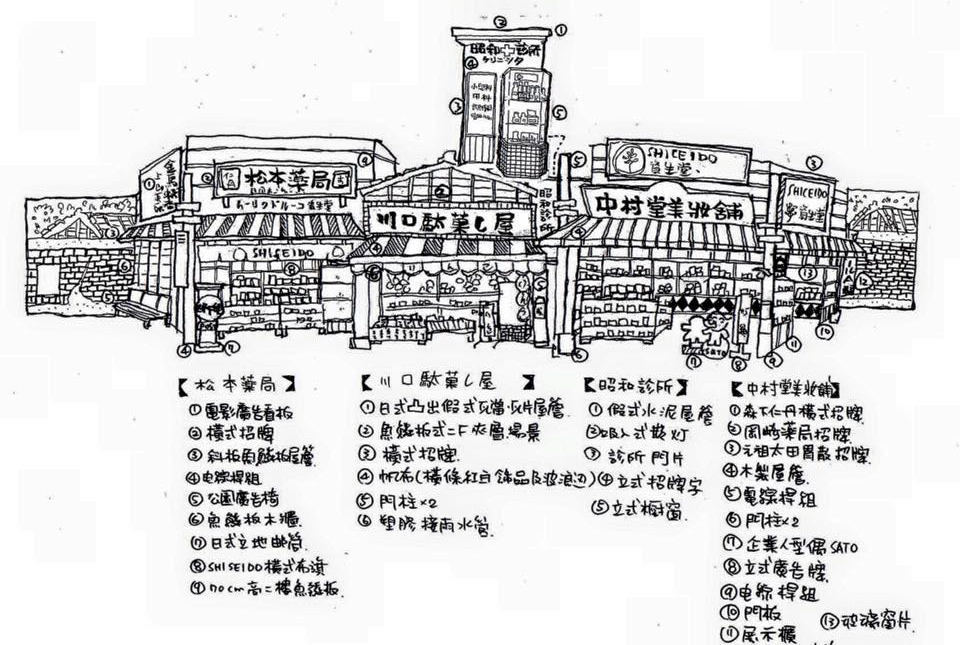 昭和診所
クリニック
SHICEIDO
資生堂
松本薬局
SHICEIDO
昭和診所
中村堂美妝舖
川口駄菓し屋
SHISEIDO
SATO
【松本藥局】
①電影廣告看板
②橫式招牌
③斜板魚鱗板屋簷
④电線桿組
⑤公園廣告椅
⑥魚鱗板木牆
⑦日式立地郵筒
⑧SHISEIDO橫式布旗
⑨70cm高二樓魚鱗板
【川口駄菓し屋】
①日式凸出假式瓦當·瓦片屋簷
②魚鱗板式二F夾層場景
③橫式招牌
④帆布(橫條紅白飾品及波浪边)
⑤門柱×2
⑥塑膠接雨水管
【昭和診所】
①假式水泥屋簷
②吸入式崁灯
③診所門片
④立式招牌字
⑤立式櫥窗
【中村堂美妝舖】
①森下仁丹橫式招牌
②岡崎藥局招牌
③元祖太田胃散招牌
④木製屋簷
⑤電線桿組
⑥門柱×2
⑦企業人型偶SATO
⑧立式廣告牌
⑨电線桿組
⑩門板
⑪展示櫃
⑬玻璃窗片